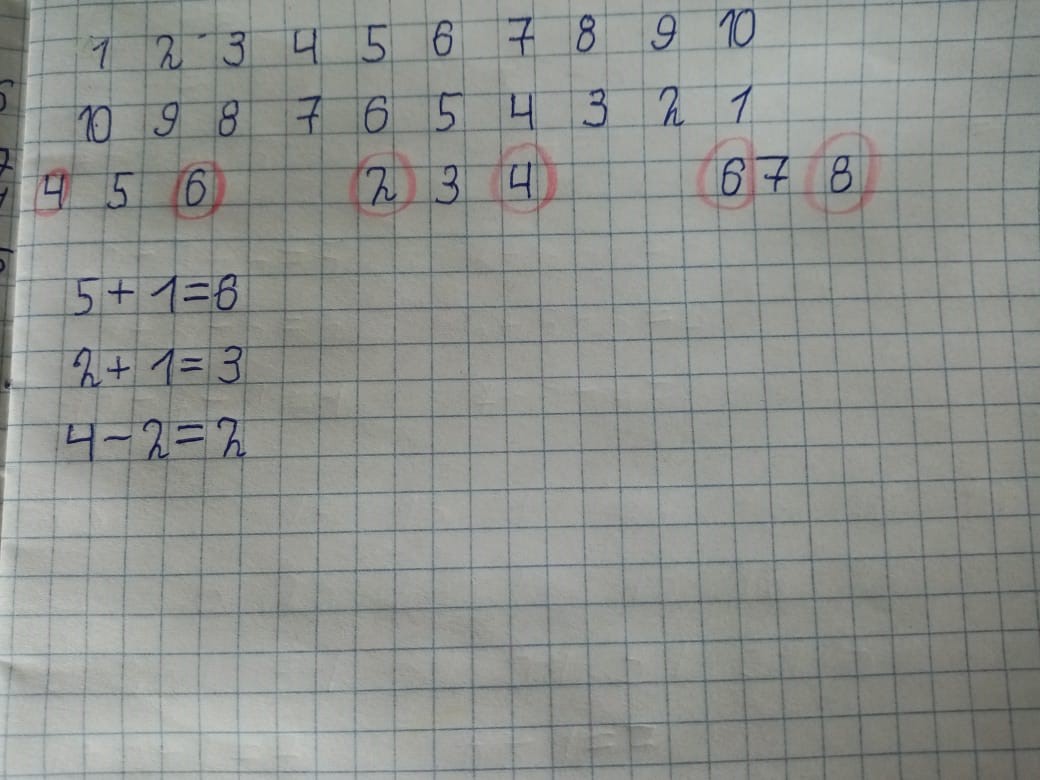 1 2 3 4 5 6 7 8 9 10
10 9 8 7 6 5 4 3 2 1
4 5 6 2 3 4 6 7 8
5 + 1 = 6
2 + 1 = 3
4 - 2 = 2